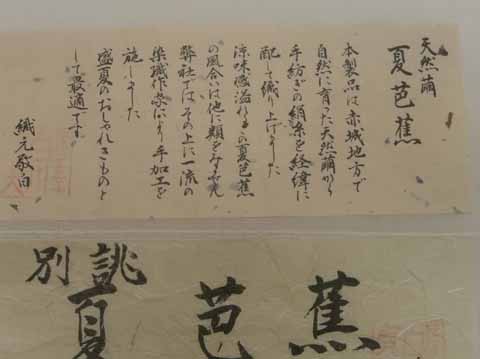 天然繭
夏芭蕉
本製品は赤城地方で
自然に育った天然繭から
手紡ぎの絹糸を経緯に
配して織り上げました
涼味感溢れるこの夏芭蕉
の風合いは他に類をみません
弊社ではその上に一流の
染織作家により手加工を
施しました
盛夏のおしゃれきものと
して最適です
織元敬白
別誂
夏芭蕉